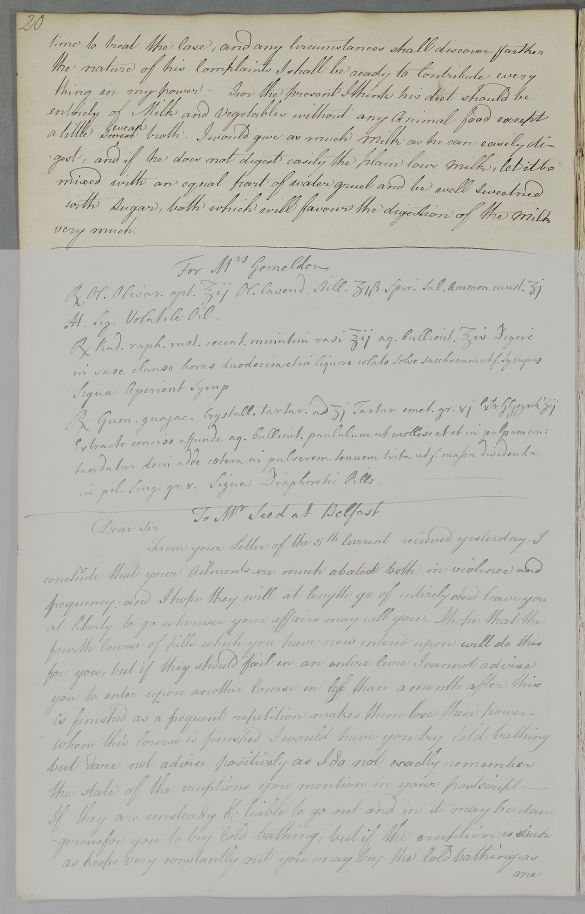 20
time to treat the Case, and any circumstances shall discover farther
the nature of his Complaints I shall be ready to Contribute every
thing in my power – For the present I think his diet should be
entirely of Milk and Vegetables without any Animal food except
a little weak broth. I would give as much milk as he can easely di-
-gest, and if he does not digest easely the plain cows milk, let it be
mixed with an equal part of water gruel and be well sweetned
with Sugar, both which will favour the digestion of the Milk
very much
For Mrs Gomeldon
Rx Ol. Olivar. opt. ʒij Ol. Lavend. still. ʒiß Spir. Sal. Ammon. caust. ʒj
M. Sig. Volatile Oil.
Rx Rad. raph. rust. recent. minutim rasi ʒij aq. bullient. Digere
in vase clauso horas duodecim et in liquore colato solve sacchar. ut f. syrupus
Signa Aperient Syrup
Rx Gum. guajac. Crystall. tartar. ad ʒj Tartar emet. gr. vj Extr Glycyrrh ʒij
Extracto conciso affunde aq. bullient. paululum ut mollescat et in pulpam con:
tundatur dein adde cetera in pulverem tenuem trita ut f. massa dividenda
in pil. sing. gr. v. Signa Diaphoretic Pills
To Mr Seed at Belfast
Dear Sir
From your Letter of the 5th Current received yesterday, I
conclude that your Ailments are much abated both in violence and
frequency, and I hope they will at length go of entirely and leave you
at liberty to go wherever your affairs may call you. I hope that the
fourth Course of pills which you have now entered upon will do this
for you, but if they should fail in an entire Cure I cannot advise
you to enter upon another Course in less than a month after this
is finished as a frequent repetition makes them lose their power –
When this Course is finished I would have you try Cold bathing
but dare not advise positively as I do not exactly remember
the state of the eruptions you mention in your postscript –
If they are unsteady & liable to go out and in it may be dan
-gerous for you to try Cold bathing, but if the eruption is such
as keeps very constantly out you may try the Cold bathing as
me